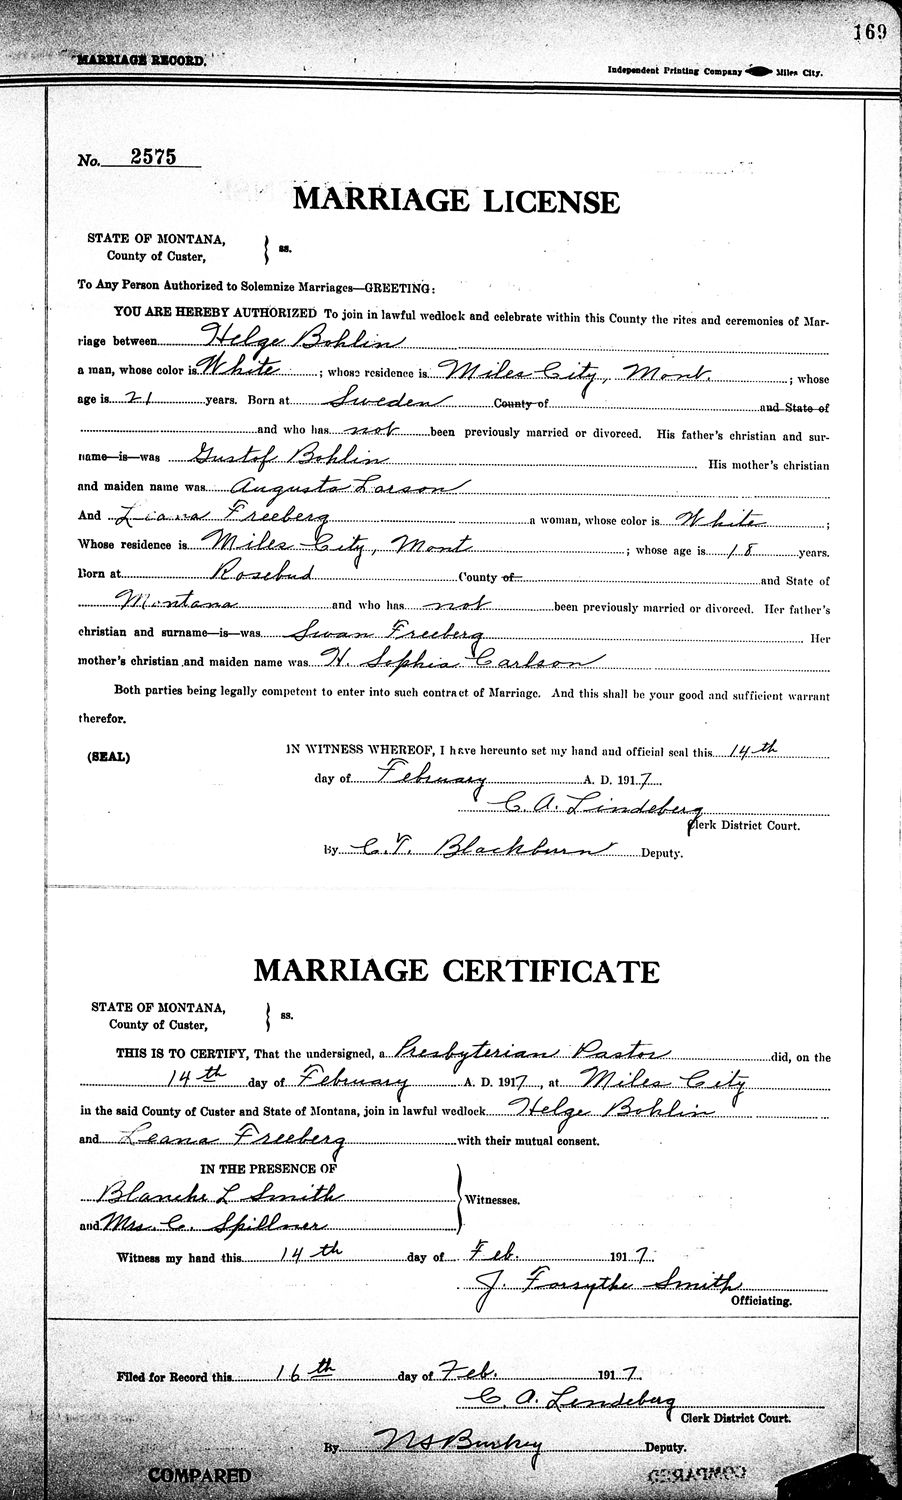 169
MARRIAGE RECORD.
Independent Printing Company Miles City.
No. 2575
MARRIAGE LICENSE
STATE OF MONTANA, } ss.
County of Custer,
To Any Person Authorized to Solemnize Marriages—GREETING:
YOU ARE HEREBY AUTHORIZED To join in lawful wedlock and celebrate within this County the rites and ceremonies of Mar-
riage between Helge Bohlin
a man, whose color is White ; whose residence is Miles City, Mont. ; whose
age is 21 years. Born at Sweden County of and State of
and who has not been previously married or divorced. His father's christian and sur-
name—is—was Gustof Bohlin His mother's christian
and maiden name was Augusta Larson
And Leana Freeberg a woman, whose color is White ;
Whose residence is Miles City, Mont ; whose age is 18 years.
Born at Rosebud County of and State of
Montana and who has not been previously married or divorced. Her father's
christian and surname—is—was Swan Freeberg Her
mother's christian and maiden name was H. Sophia Carlson
Both parties being legally competent to enter into such contract of Marriage. And this shall be your good and sufficient warrant
therefor.
(SEAL) IN WITNESS WHEREOF, I have hereunto set my hand and official seal this 14th
day of February A. D. 1917
C. A. Lindeberg
Clerk District Court.
By C. T. Blackburn Deputy.
MARRIAGE CERTIFICATE
STATE OF MONTANA, } ss.
County of Custer,
THIS IS TO CERTIFY, That the undersigned, a Presbyterian Pastor did, on the
14th day of February A. D. 1917, at Miles City
in the said County of Custer and State of Montana, join in lawful wedlock Helge Bohlin
and Leana Freeberg with their mutual consent.
IN THE PRESENCE OF
Blanche L Smith } Witnesses.
and Mrs. C. Spillner
Witness my hand this 14th day of Feb. 1917.
J. Forsythe Smith
Officiating.
Filed for Record this 16th day of Feb. 1917.
C. A. Lindeberg
Clerk District Court.
By Deputy.
COMPARED COMPARED